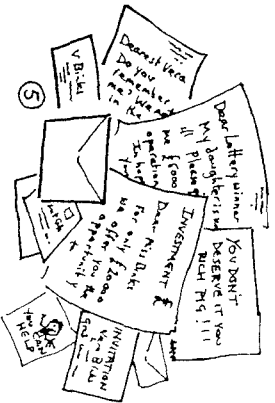 V Binks
Dearest Vera
Do you
remember
me? We met
in the
5
Dear Lottery Winner
My daughter is
ill please
me £5000
operation
In hope
YOU DON'T
DESERVE IT YOU
RICH PIG!!!
INVESTMENT
Dear Miss Binks
For only £20000
we offer you the
opportunity
YOU CAN
HELP
INVITATION
Vera Binks